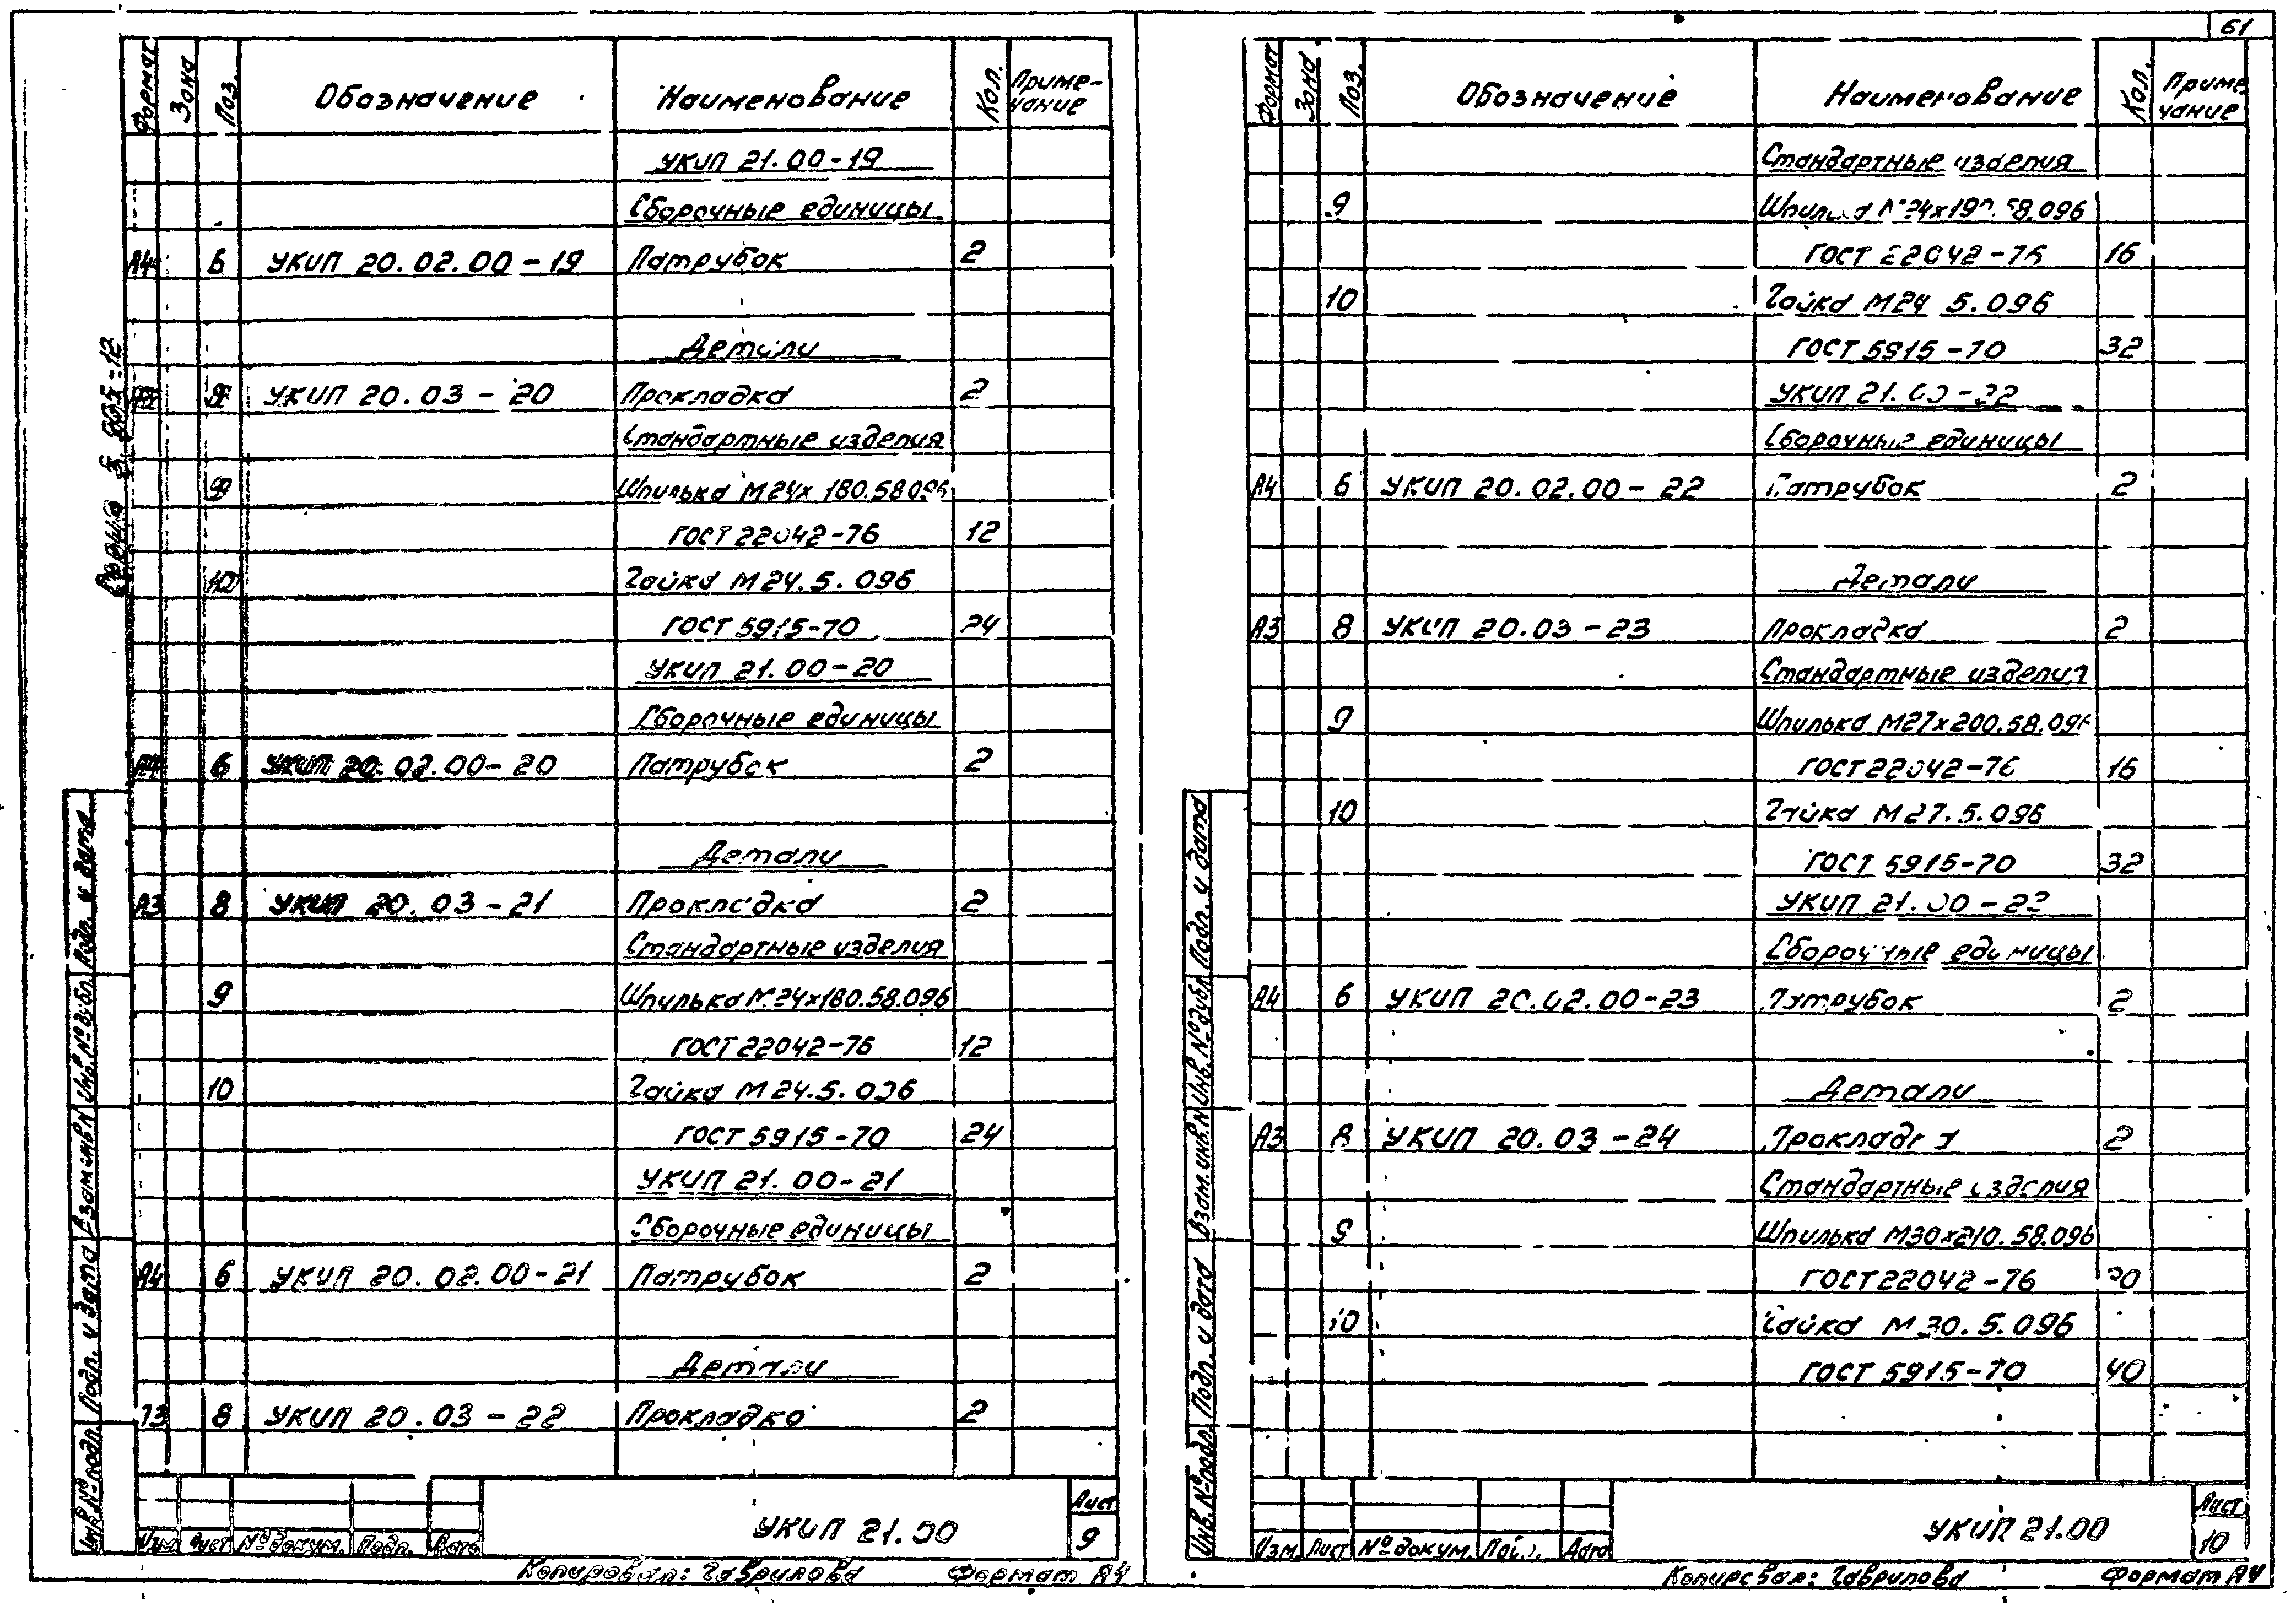 61
Формат Зона Поз. Обозначение Наименование Кол. Приме-
чание
УКИП 21.00-19
Сборочные единицы
А4 6 УКИП 20.02.00-19 Патрубок 2
Детали
А3 8 УКИП 20.03-20 Прокладка 2
Стандартные изделия
9 Шпилька М24х180.58.096
ГОСТ 22042-76 12
10 Гайка М24.5.096
ГОСТ 5915-70 24
УКИП 21.00-20
Сборочные единицы
А4 6 УКИП 20.02.00-20 Патрубок 2
Детали
А3 8 УКИП 20.03-21 Прокладка 2
Стандартные изделия
9 Шпилька М24х180.58.096
ГОСТ 22042-76 12
10 Гайка М24.5.096
ГОСТ 5915-70 24
УКИП 21.00-21
Сборочные единицы
А4 6 УКИП 20.02.00-21 Патрубок 2
Детали
А3 8 УКИП 20.03-22 Прокладка 2
Инв.№подл. Подл. и дата Взам.инв.№ Инв.№дубл. Подл. и дата
Изм Лист №докум. Подп. Дата
УКИП 21.00
Лист
9
Копировал: Гаврилова Формат А4
Формат Зона Поз. Обозначение Наименование Кол. Приме-
чание
Стандартные изделия
9 Шпилька М24х190.58.096
ГОСТ 22042-76 16
10 Гайка М24 5.096
ГОСТ 5915-70 32
УКИП 21.00-22
Сборочные единицы
А4 6 УКИП 20.02.00-22 Патрубок 2
Детали
А3 8 УКИП 20.03-23 Прокладка 2
Стандартные изделия
9 Шпилька М27х200.58.096
ГОСТ 22042-76 16
10 Гайка М27.5.096
ГОСТ 5915-70 32
УКИП 21.00-23
Сборочные единицы
А4 6 УКИП 20.02.00-23 Патрубок 2
Детали
А3 8 УКИП 20.03-24 Прокладка 2
Стандартные изделия
9 Шпилька М30х210.58.096
ГОСТ 22042-76 20
10 Гайка М30.5.096
ГОСТ 5915-70 40
Инв.№подл. Подл. и дата Взам.инв.№ Инв.№дубл. Подл. и дата
Изм Лист №докум. Подп. Дата
УКИП 21.00
Лист
10
Копировал: Гаврилова Формат А4